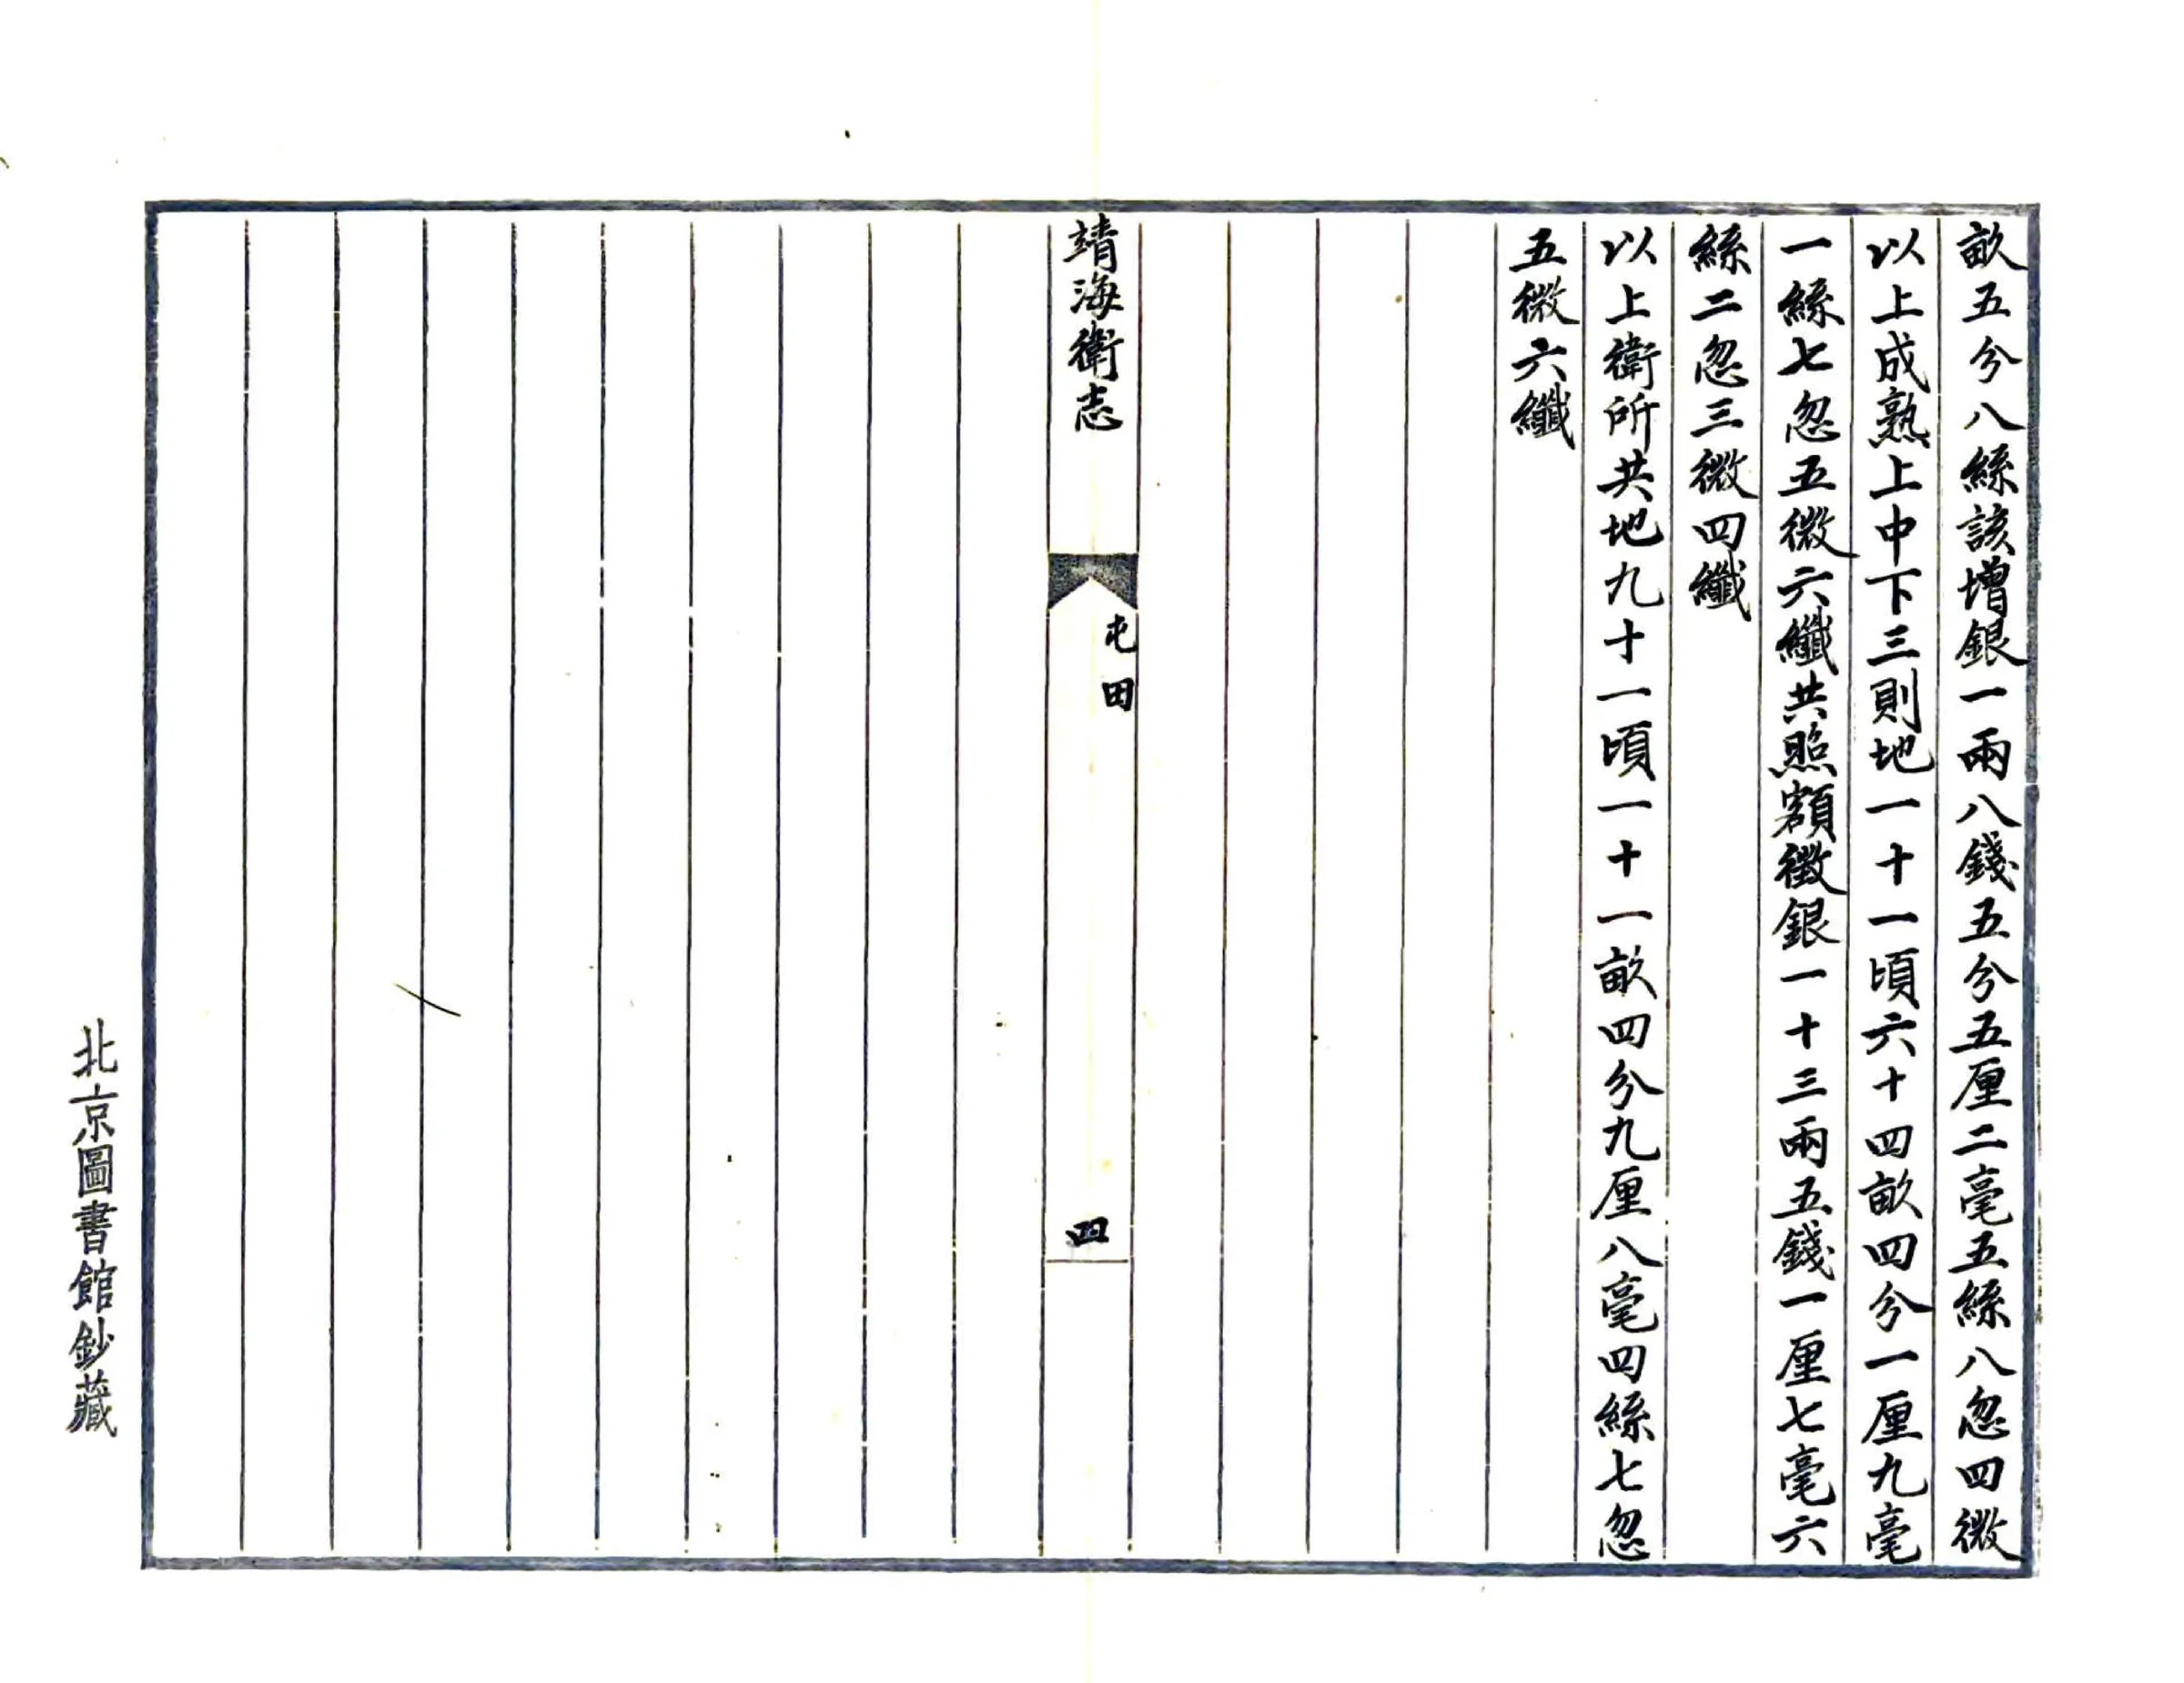 畝五分八絲該增銀一兩八錢五分五厘二毫五絲八忽四微
以上成熟上中下三則地一十一頃六十四畝四分一厘九毫
一絲七忽五微六纖共照額徵銀一十三兩五錢一厘七毫六
絲二忽三微四纖
以上衛所共地九十一頃一十一畝四分九厘八毫四絲七忽
五微六纖
靖海衛志
屯田
四
北京圖書館鈔藏